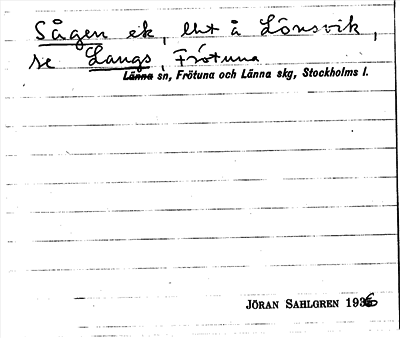 Sågen ek, lht å Lönsvik,
se Langs, Frötuna
Länna sn, Frötuna och Länna skg, Stockholms l.
JÖRAN SAHLGREN 1936